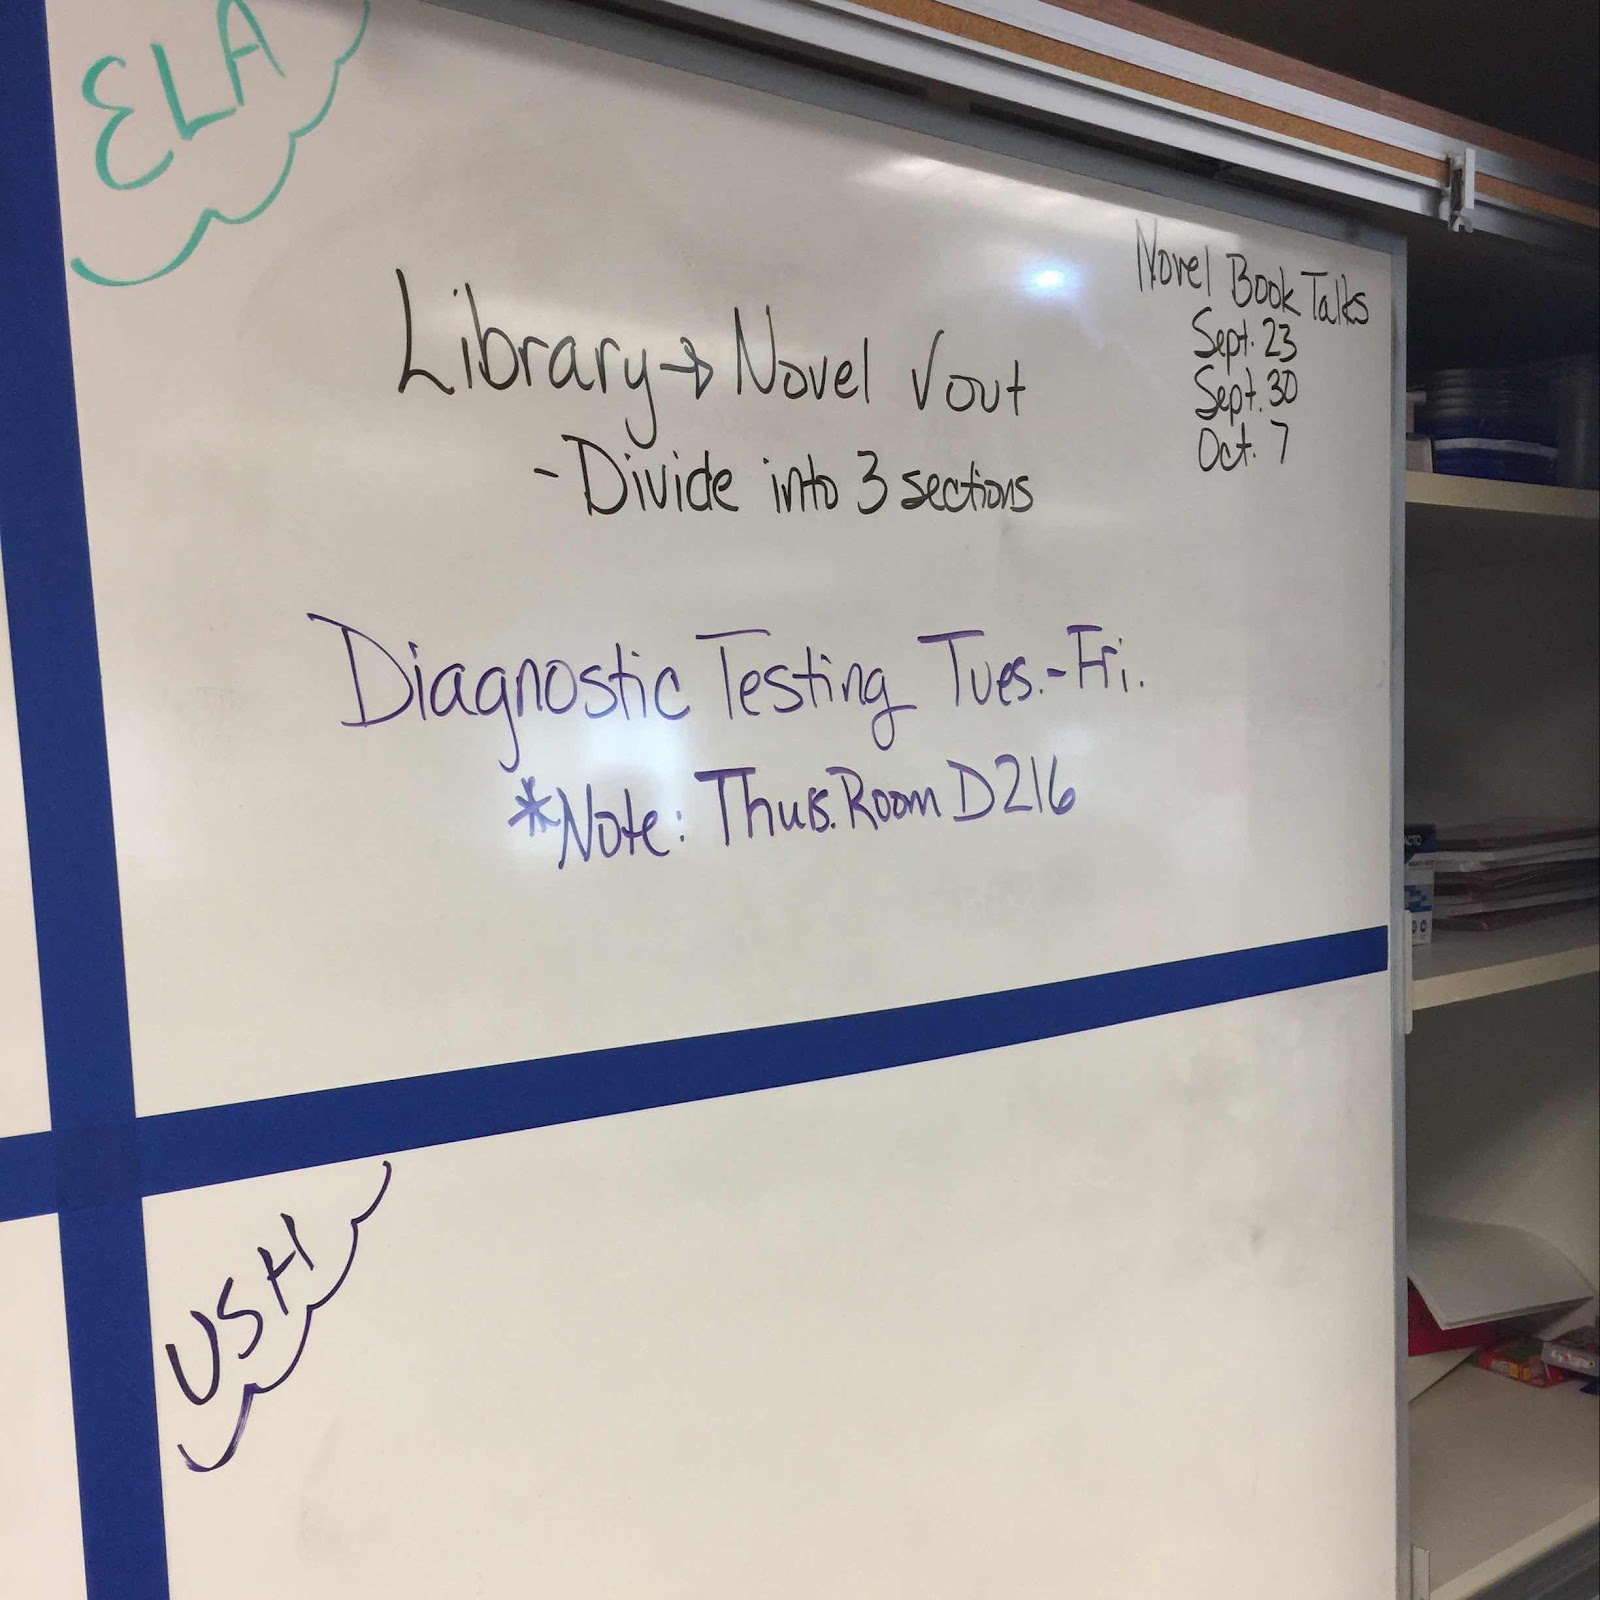 ELA
Library → Novel √out
- Divide into 3 sections
Novel Book Talks
Sept. 23
Sept. 30
Oct. 7
Diagnostic Testing Tues.-Fri.
*Note: Thurs. Room D216
USH